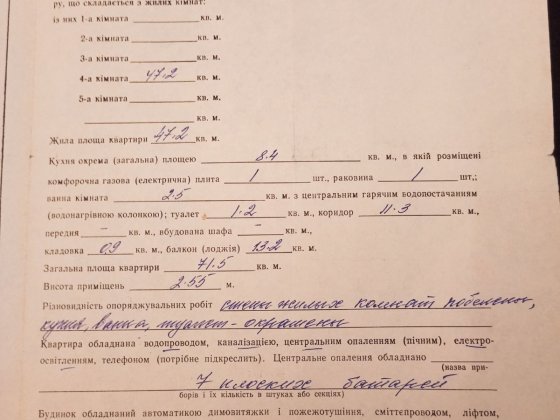 ру, що складається з жилих кімнат:
із них 1-а кімната кв. м.
2-а кімната кв. м.
3-а кімната кв. м.
4-а кімната 47.2 кв. м.
5-а кімната кв. м.
кв. м.
Жила площа квартири 47.2 кв. м.
Кухня окрема (загальна) площею 8.4 кв. м., в якій розміщені
комфорочна газова (електрична) плита 1 шт., раковина 1 шт,;
ванна кімната 2.5 кв. м. з центральним гарячим водопостачанням
(водонагрівною колонкою); туалет 1.2 кв. м., коридор 11.3 кв. м.,
передня – кв. м., вбудована шафа – кв. м.,
кладовка 0.9 кв. м., балкон (лоджія) 13.2 кв. м.
Загальна площа квартири 71.5 кв. м.
Висота приміщень 2.55 м.
Різновидність опоряджувальних робіт стены жилых комнат побелены,
кухня, ванна, туалет - окрашены
Квартира обладнана водопроводом, каналізацією, центральним опаленням (пічним), електро-
освітленням, телефоном (потрібне підкреслить). Центральне опалення обладнано
(назва при-
7 плоских батарей
борів і їх кількість в штуках або секціях)
Будинок обладнаний автоматикою димовитяжки і пожежотушіння, сміттєпроводом, ліфтом,